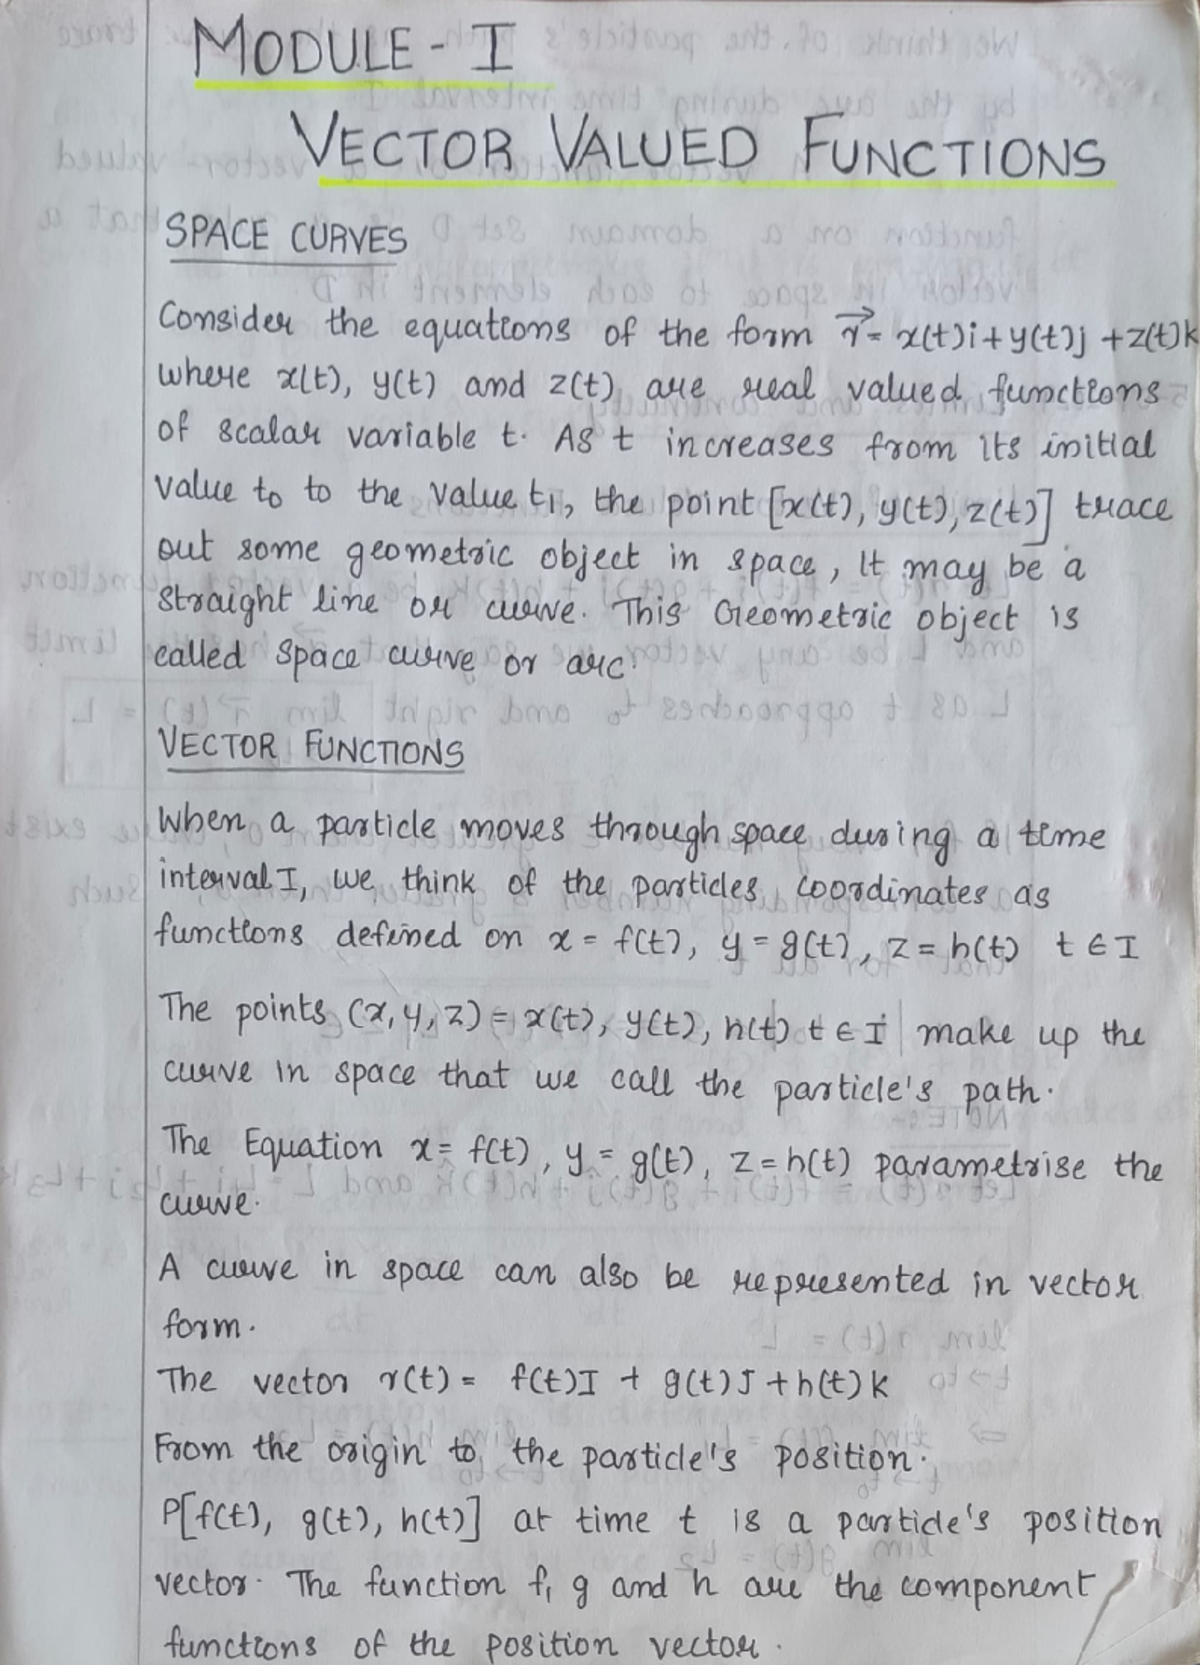 MODULE - I
VECTOR VALUED FUNCTIONS
SPACE CURVES
Consider the equations of the form r⃗ = x(t)i + y(t)j + z(t)k
where x(t), y(t) and z(t) are real valued functions
of scalar variable t. As t increases from its initial
value t₀ to the value t₁, the point [x(t), y(t), z(t)] trace
out some geometric object in space, It may be a
straight line or curve. This Geometric object is
called space curve or arc.
VECTOR FUNCTIONS
When a particle moves through space during a time
interval I, we think of the particles coordinates as
functions defined on x = f(t), y = g(t), z = h(t) t ∈ I
The points (x, y, z) = x(t), y(t), h(t) t ∈ I make up the
curve in space that we call the particle's path.
The Equation x = f(t), y = g(t), z = h(t) parametrise the
curve.
A curve in space can also be represented in vector
form.
The vector r(t) = f(t)I + g(t)J + h(t)k
From the origin to the particle's position.
P[f(t), g(t), h(t)] at time t is a particle's position
vector. The function f, g and h are the component
functions of the position vector.